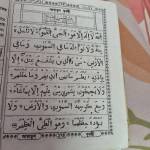 اَللّٰهُ لَآ اِلٰهَ اِلَّا هُوَ الْحَیُّ الْقَیُّوْمُ لَا تَاْخُذُهٗ
سِنَةٌ وَّلَا نَوْمٌ لَهٗ مَا فِی السَّمٰوٰتِ وَمَا فِی
الْاَرْضِ مَنْ ذَا الَّذِیْ یَشْفَعُ عِنْدَهٗٓ اِلَّا
بِاِذْنِهٖ یَعْلَمُ مَا بَیْنَ اَیْدِیْهِمْ وَمَا خَلْفَهُمْ
وَلَا یُحِیْطُوْنَ بِشَیْءٍ مِّنْ عِلْمِهٖٓ اِلَّا بِمَا شَآءَ
وَسِعَ كُرْسِیُّهُ السَّمٰوٰتِ وَالْاَرْضَ وَلَا
یَئُوْدُهٗ حِفْظُهُمَا وَهُوَ الْعَلِیُّ الْعَظِیْمُ